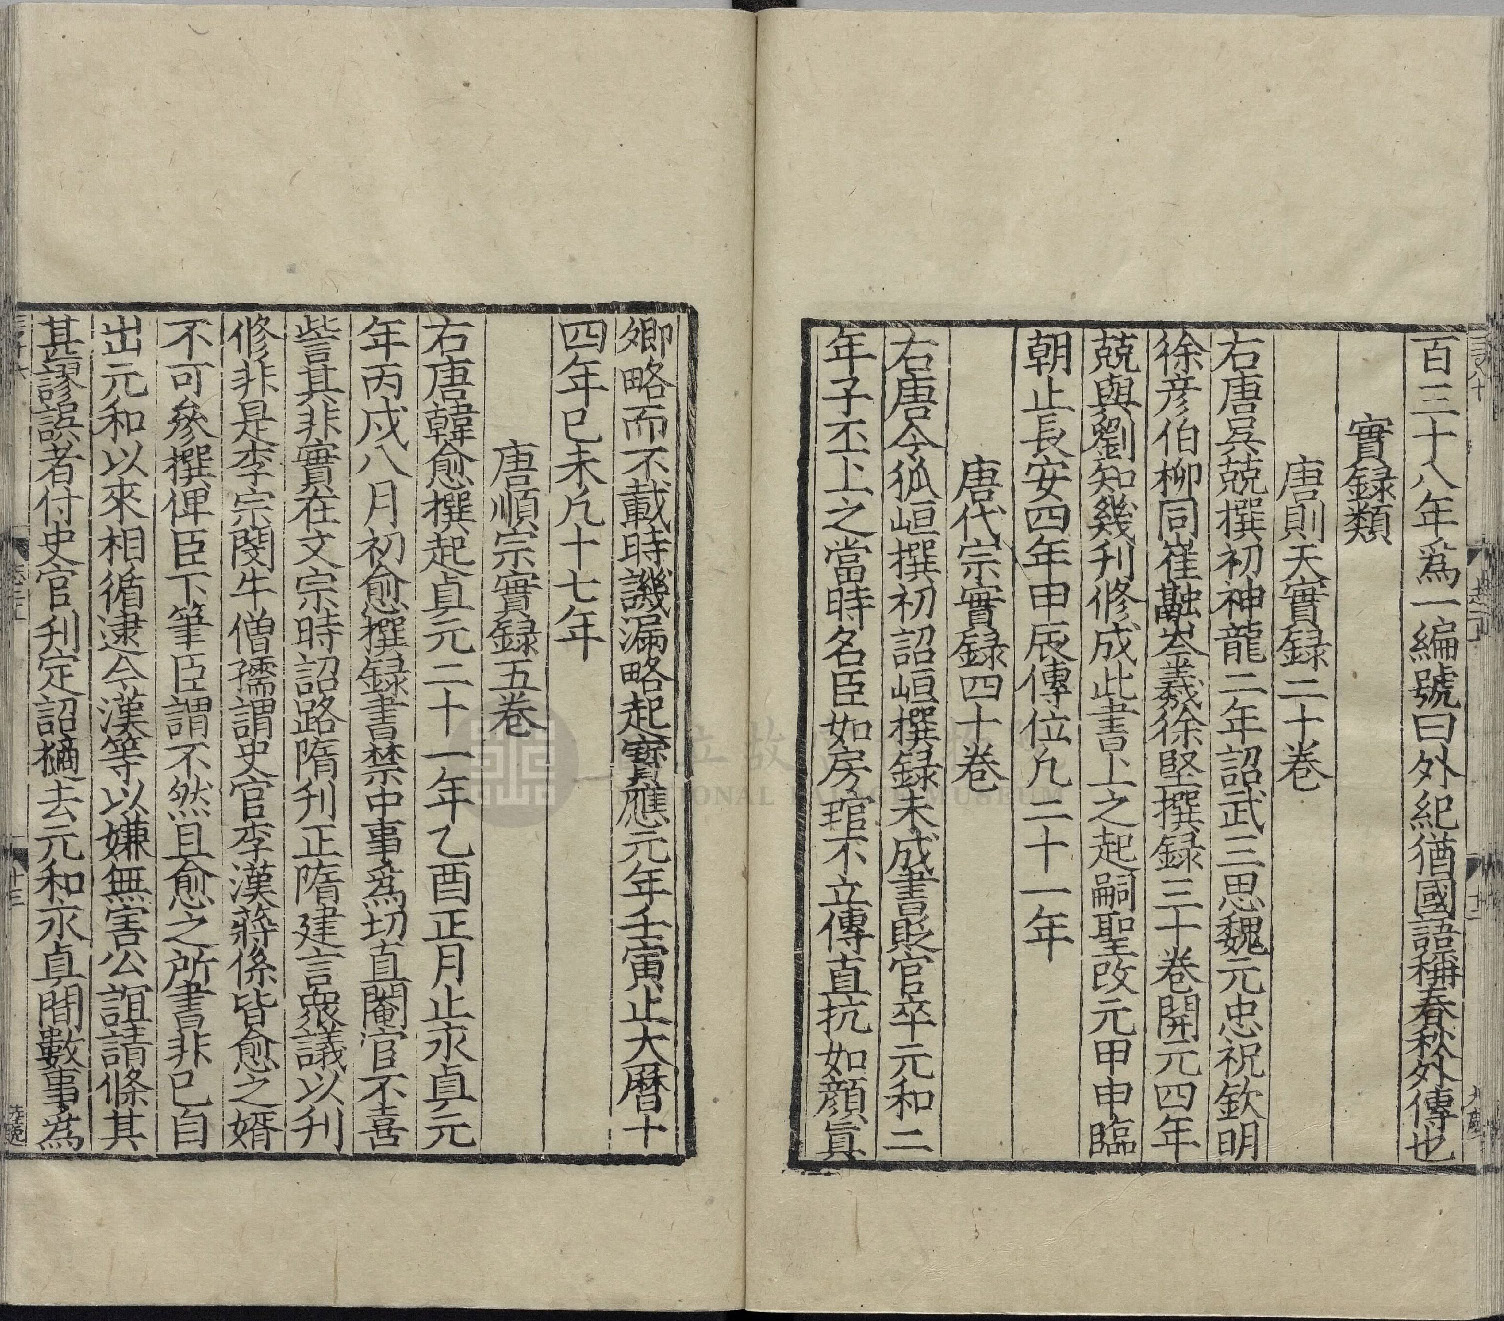 百三十八年爲一編號曰外紀猶國語稱春秋外傳也
實録類
唐則天實録二十卷
右唐吳兢撰初神龍二年詔武三思魏元忠祝欽明
徐彦伯柳同崔融岑羲徐堅撰録三十卷開元四年
兢與劉知幾刋修成此書上之起嗣聖改元甲申臨
朝止長安四年甲辰傳位凢二十一年
唐代宗實録四十卷
右唐令狐峘撰初詔峘撰録未成書貶官卒元和二
年子丕上之當時名臣如房琯不立傳直抗如顔眞
卿略而不載時譏漏略起寳應元年壬寅止大曆十
四年巳未凢十七年
唐順宗實録五卷
右唐韓愈撰起貞元二十一年乙酉正月止永貞元
年丙戍八月初愈撰録書禁中事爲切直閹官不喜
訾其非實在文宗時詔路隋刋正隋建言衆議以刋
修非是李宗閔牛僧孺謂史官李漢蔣係皆愈之婿
不可參撰俾臣下筆臣謂不然且愈之所書非巳自
出元和以來相循逮今漢等以嫌無害公誼請條其
甚謬誤者付史官刋定詔擿去元和永貞間數事爲
國立故宮博物院
NATIONAL PALACE MUSEUM